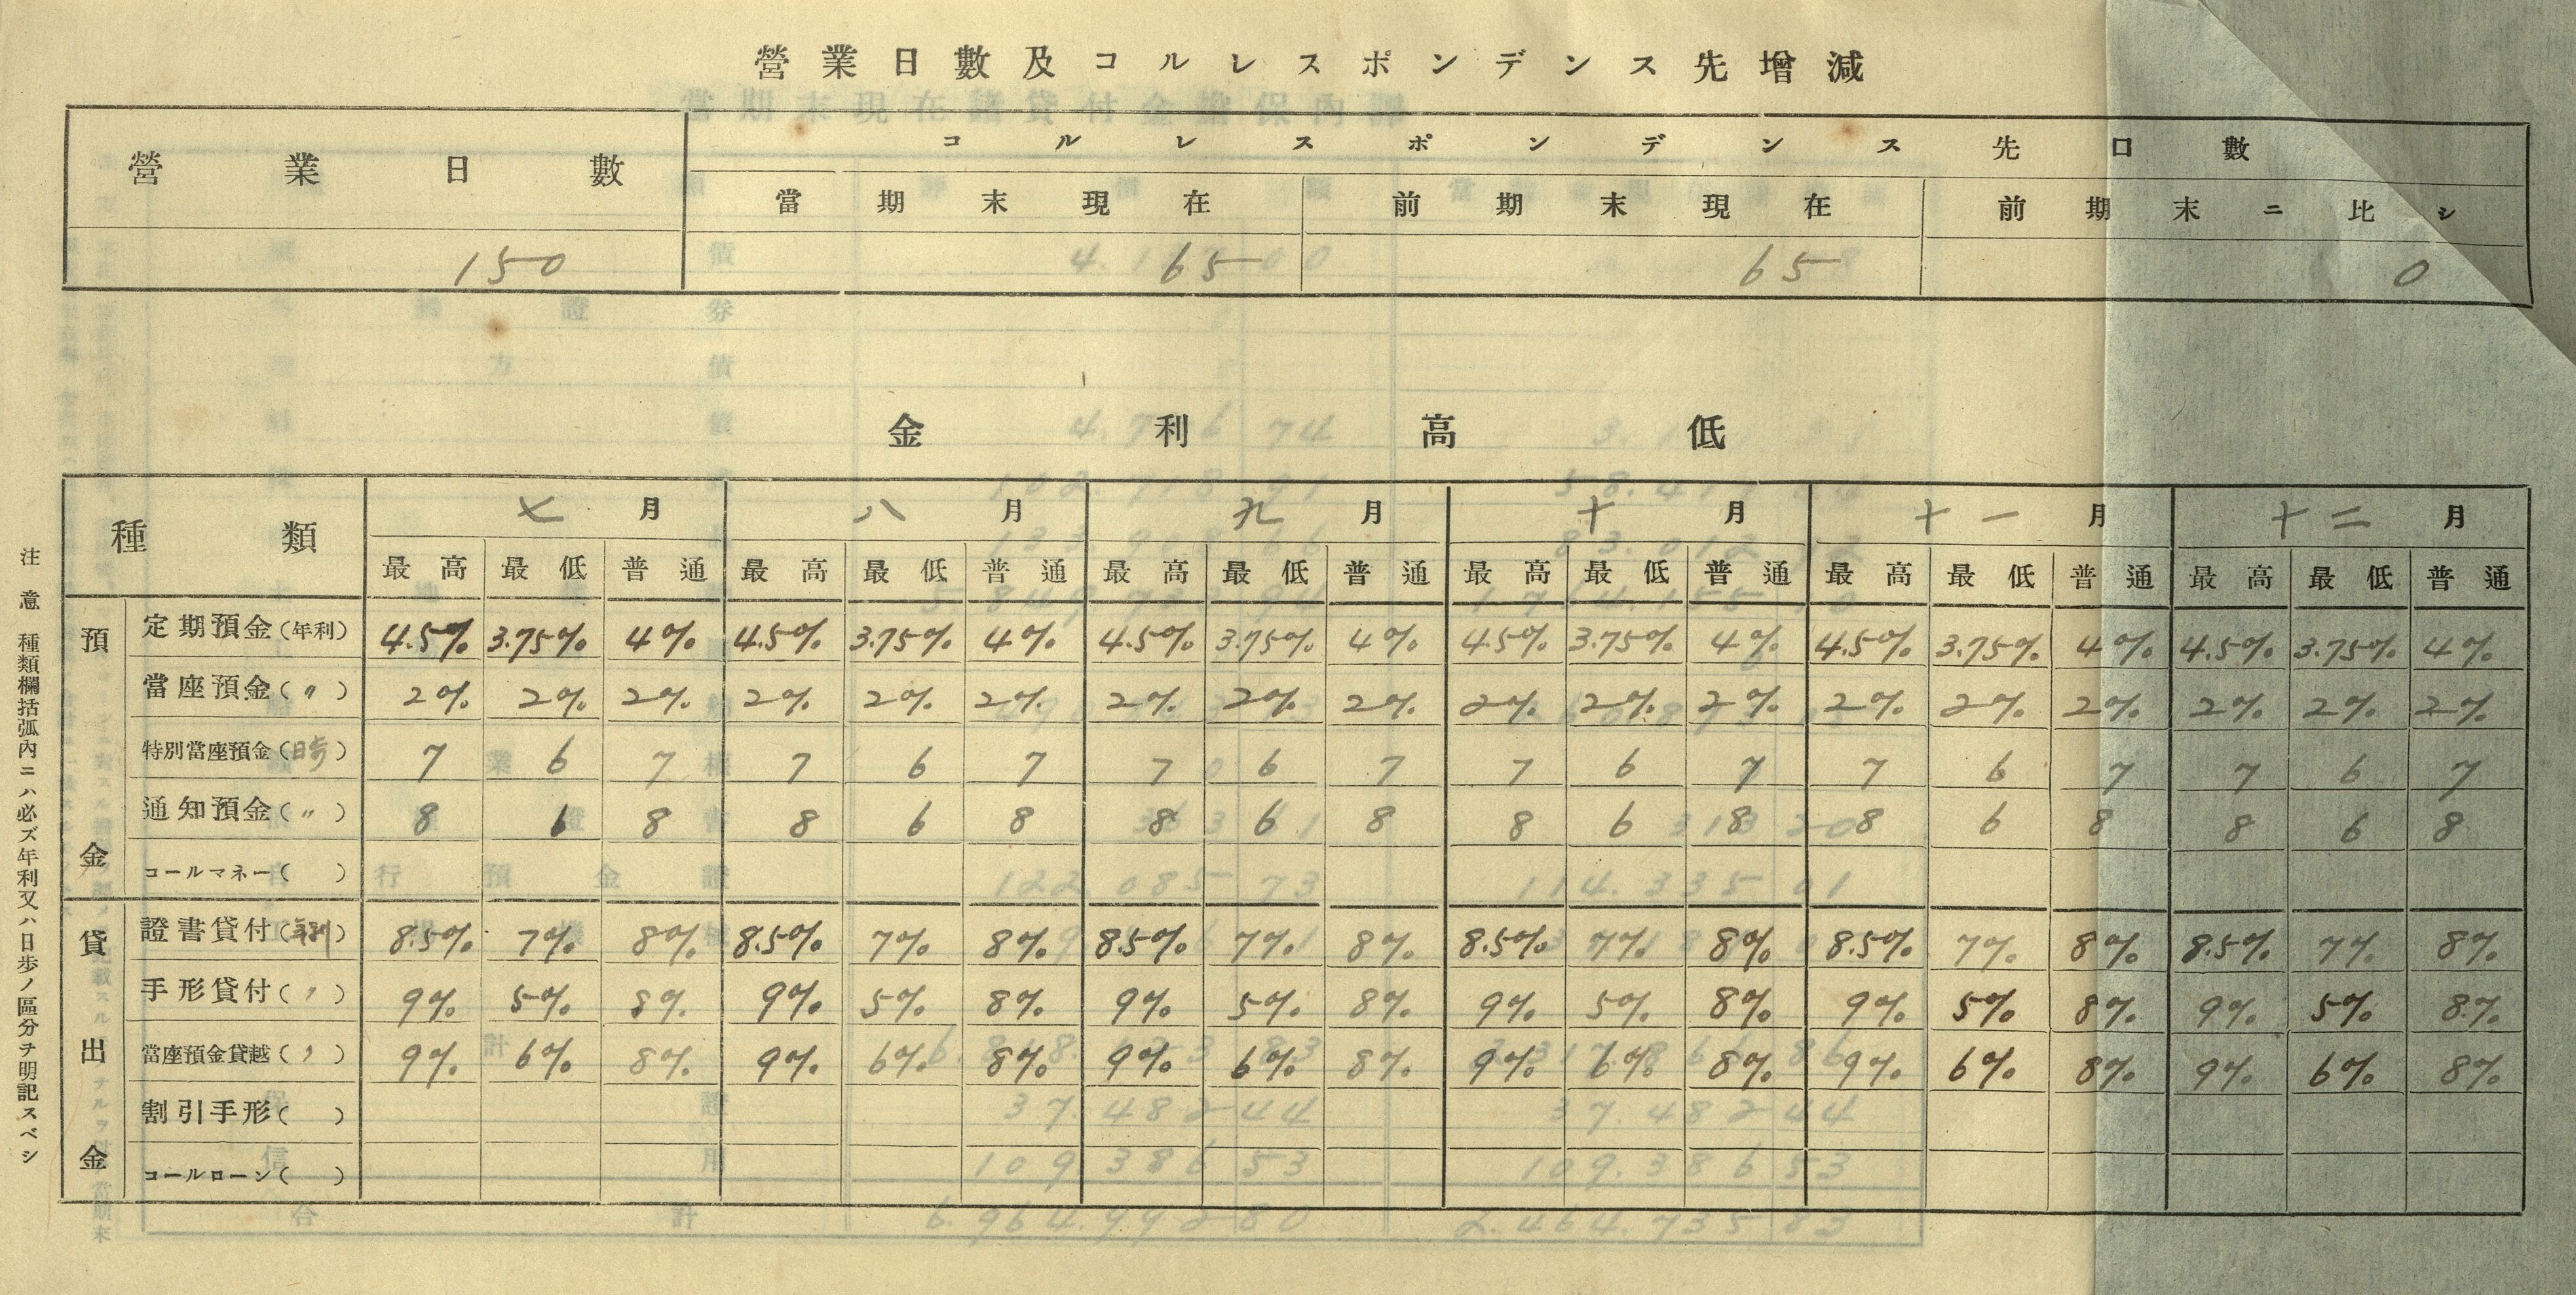 營業日數及コルレスポンデンス先增減
營業日數 コルレスポンデンス先口數
當期末現在 前期末現在 前期末ニ比シ
150 65 65 0
金利高低
種類 七月 八月 九月 十月 十一月 十二月
最高 最低 普通 最高 最低 普通 最高 最低 普通 最高 最低 普通 最高 最低 普通 最高 最低 普通
預金
定期預金(年利) 4.5% 3.75% 4% 4.5% 3.75% 4% 4.5% 3.75% 4% 4.5% 3.75% 4% 4.5% 3.75% 4% 4.5% 3.75% 4%
當座預金(〃) 2% 2% 2% 2% 2% 2% 2% 2% 2% 2% 2% 2% 2% 2% 2% 2% 2% 2%
特別當座預金(日歩) 7 6 7 7 6 7 7 6 7 7 6 7 7 6 7 7 6 7
通知預金(〃) 8 6 8 8 6 8 8 6 8 8 6 8 8 6 8 8 6 8
コールマネー( )
貸出金
證書貸付(年利) 8.5% 7% 8% 8.5% 7% 8% 8.5% 7% 8% 8.5% 7% 8% 8.5% 7% 8% 8.5% 7% 8%
手形貸付(〃) 9% 5% 8% 9% 5% 8% 9% 5% 8% 9% 5% 8% 9% 5% 8% 9% 5% 8%
當座預金貸越(〃) 9% 6% 8% 9% 6% 8% 9% 6% 8% 9% 6% 8% 9% 6% 8% 9% 6% 8%
割引手形( )
コールローン( )
注意 種類欄括弧內ニハ必ズ年利又ハ日歩ノ區分ヲ明記スベシ